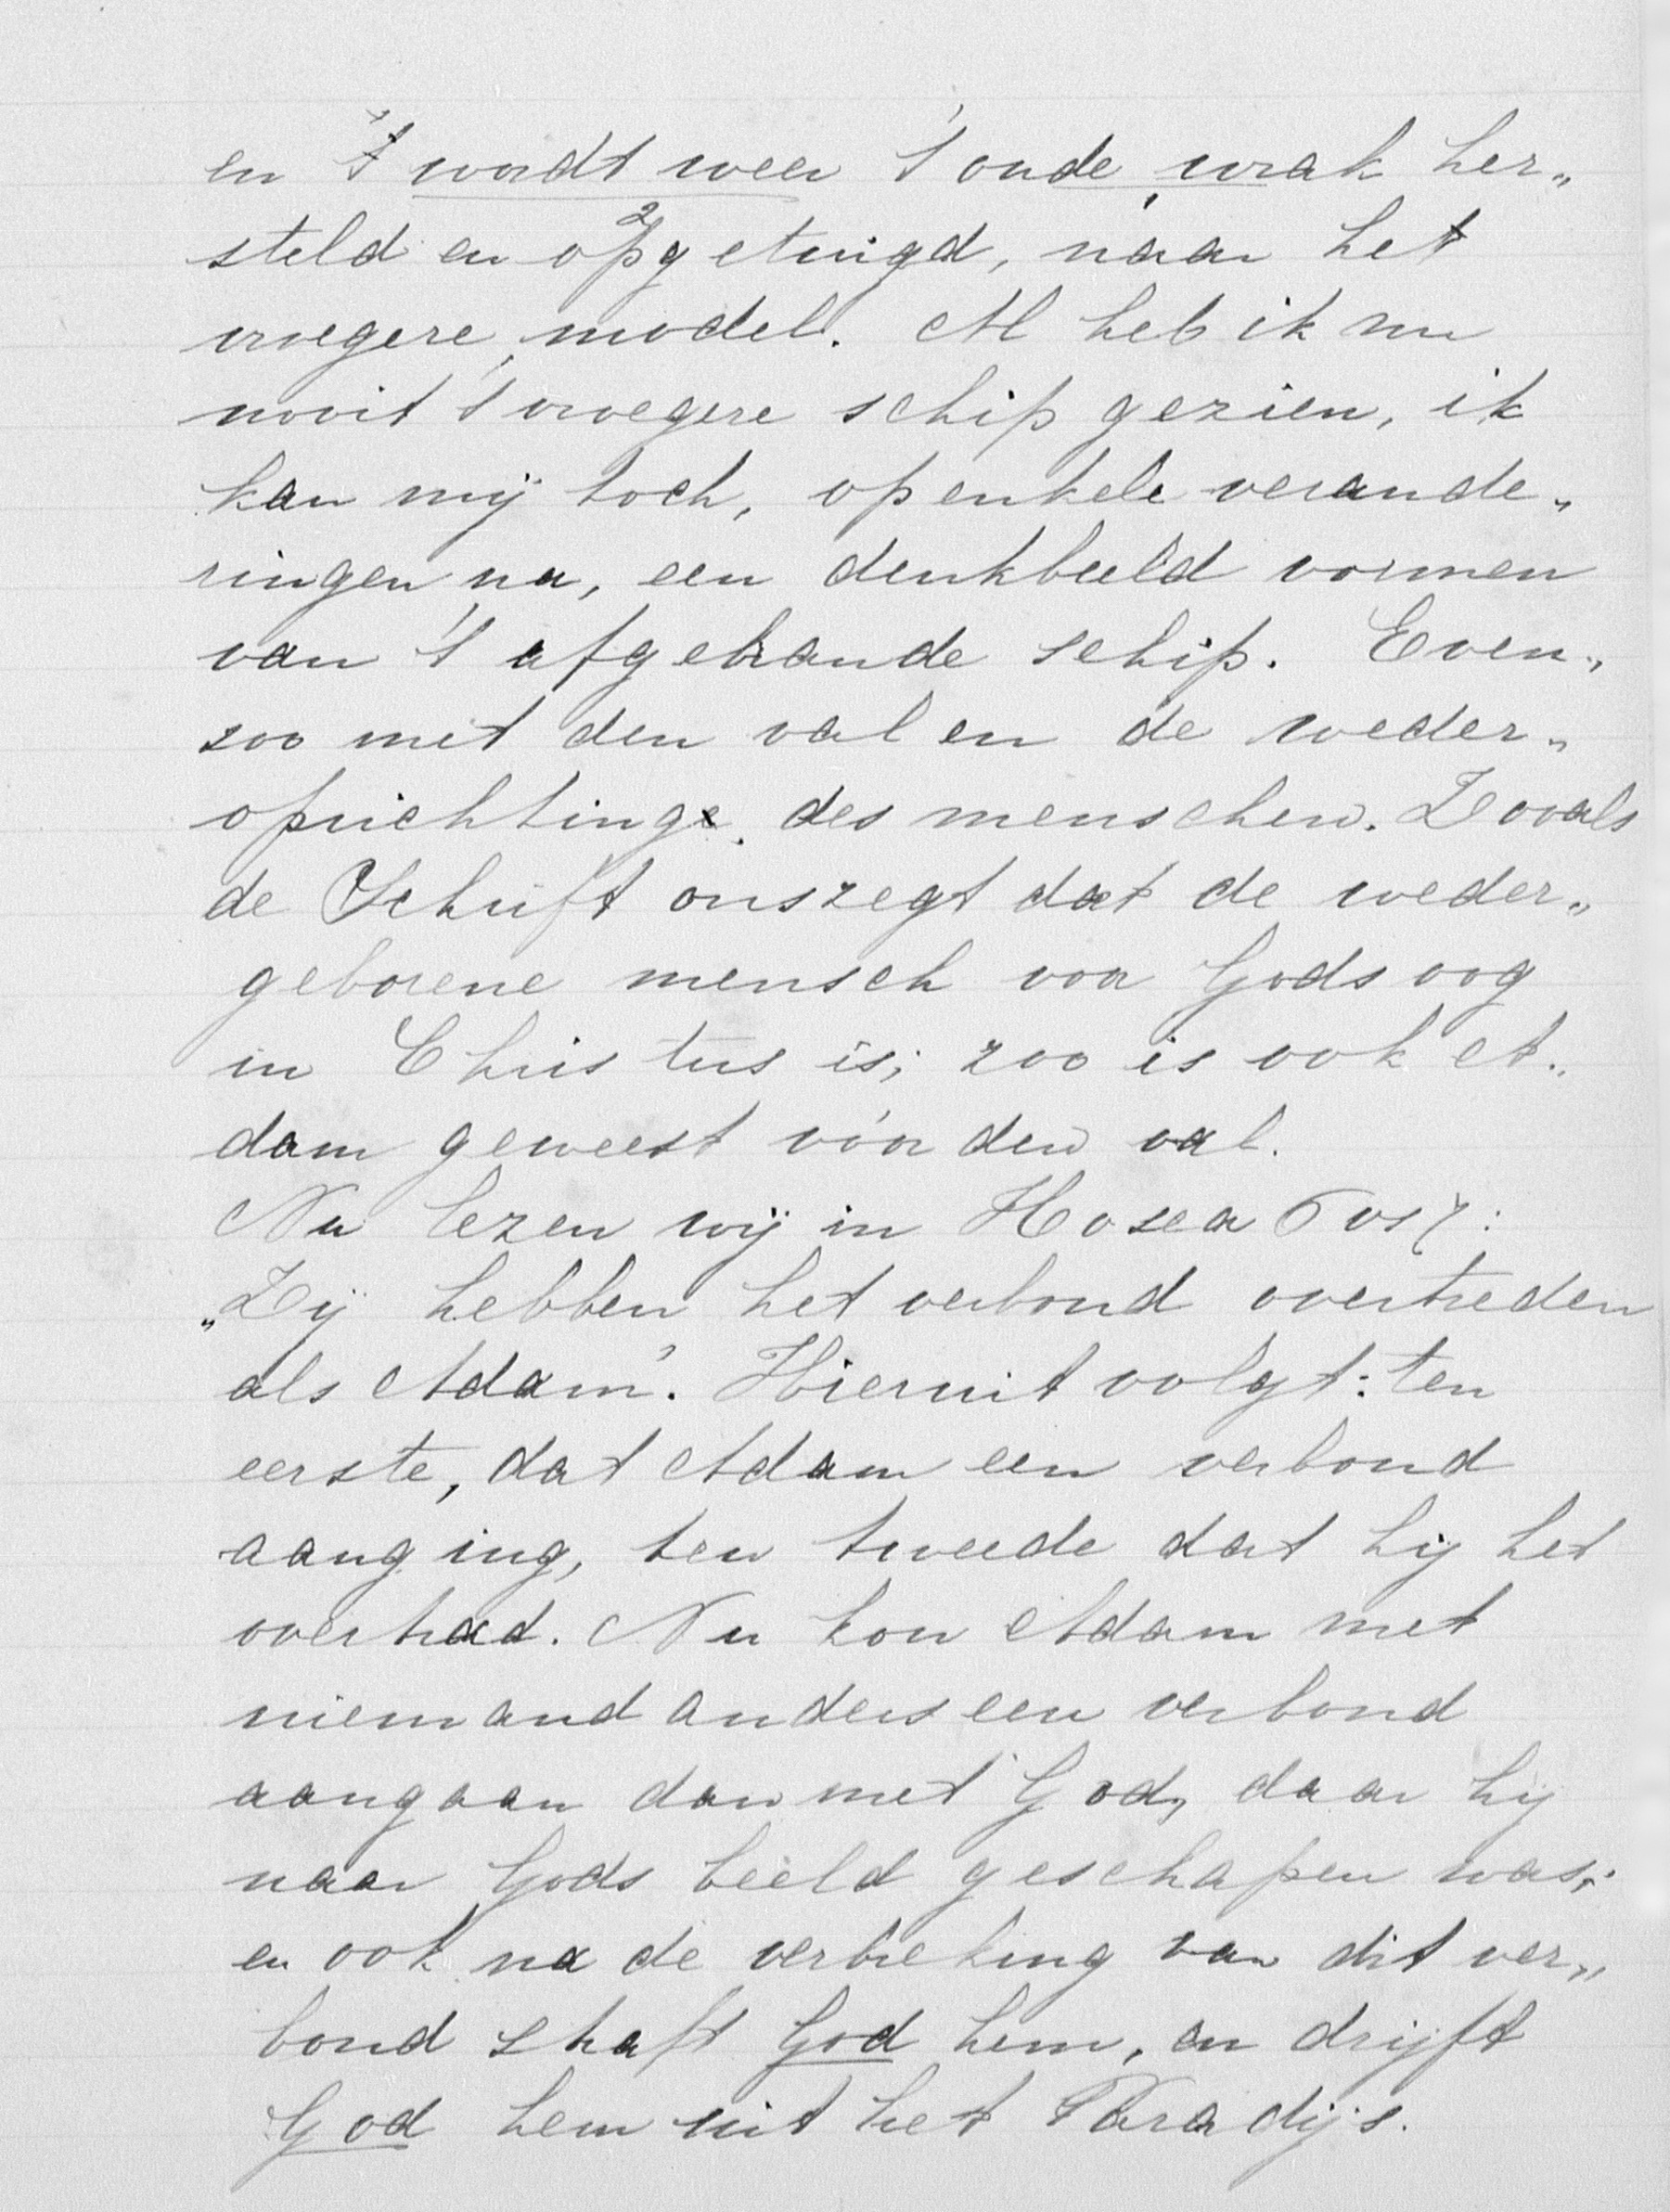 en 't wordt weer 't oude wrak her„
steld en opgetuigd, naar het
vroegere model. Al heb ik nu
nooit 't vroegere schip gezien, ik
kan mij toch, op enkele verande„
ringen na, een denkbeeld vormen
van 't afgebrande schip. Even„
zoo met den val en de weder„
oprichting des menschen. Zooals
de Schrift ons zegt dat de weder„
geborene mensch voor Gods oog
in Christus is; zoo is ook A„
dam geweest vóór den val.
Nu lezen wij in Hosea 6 vs 7:
„Zij hebben het verbond overtreden
als Adam". Hieruit volgt: ten
eerste, dat Adam een verbond
aanging, ten tweede dat hij het
overtrad. Nu kon Adam met
niemand anders een verbond
aangaan dan met God, daar hij
naar Gods beeld geschapen was;
en ook na de verbreking van dit ver„
bond straft God hem, en drijft
God hem uit het Paradijs.